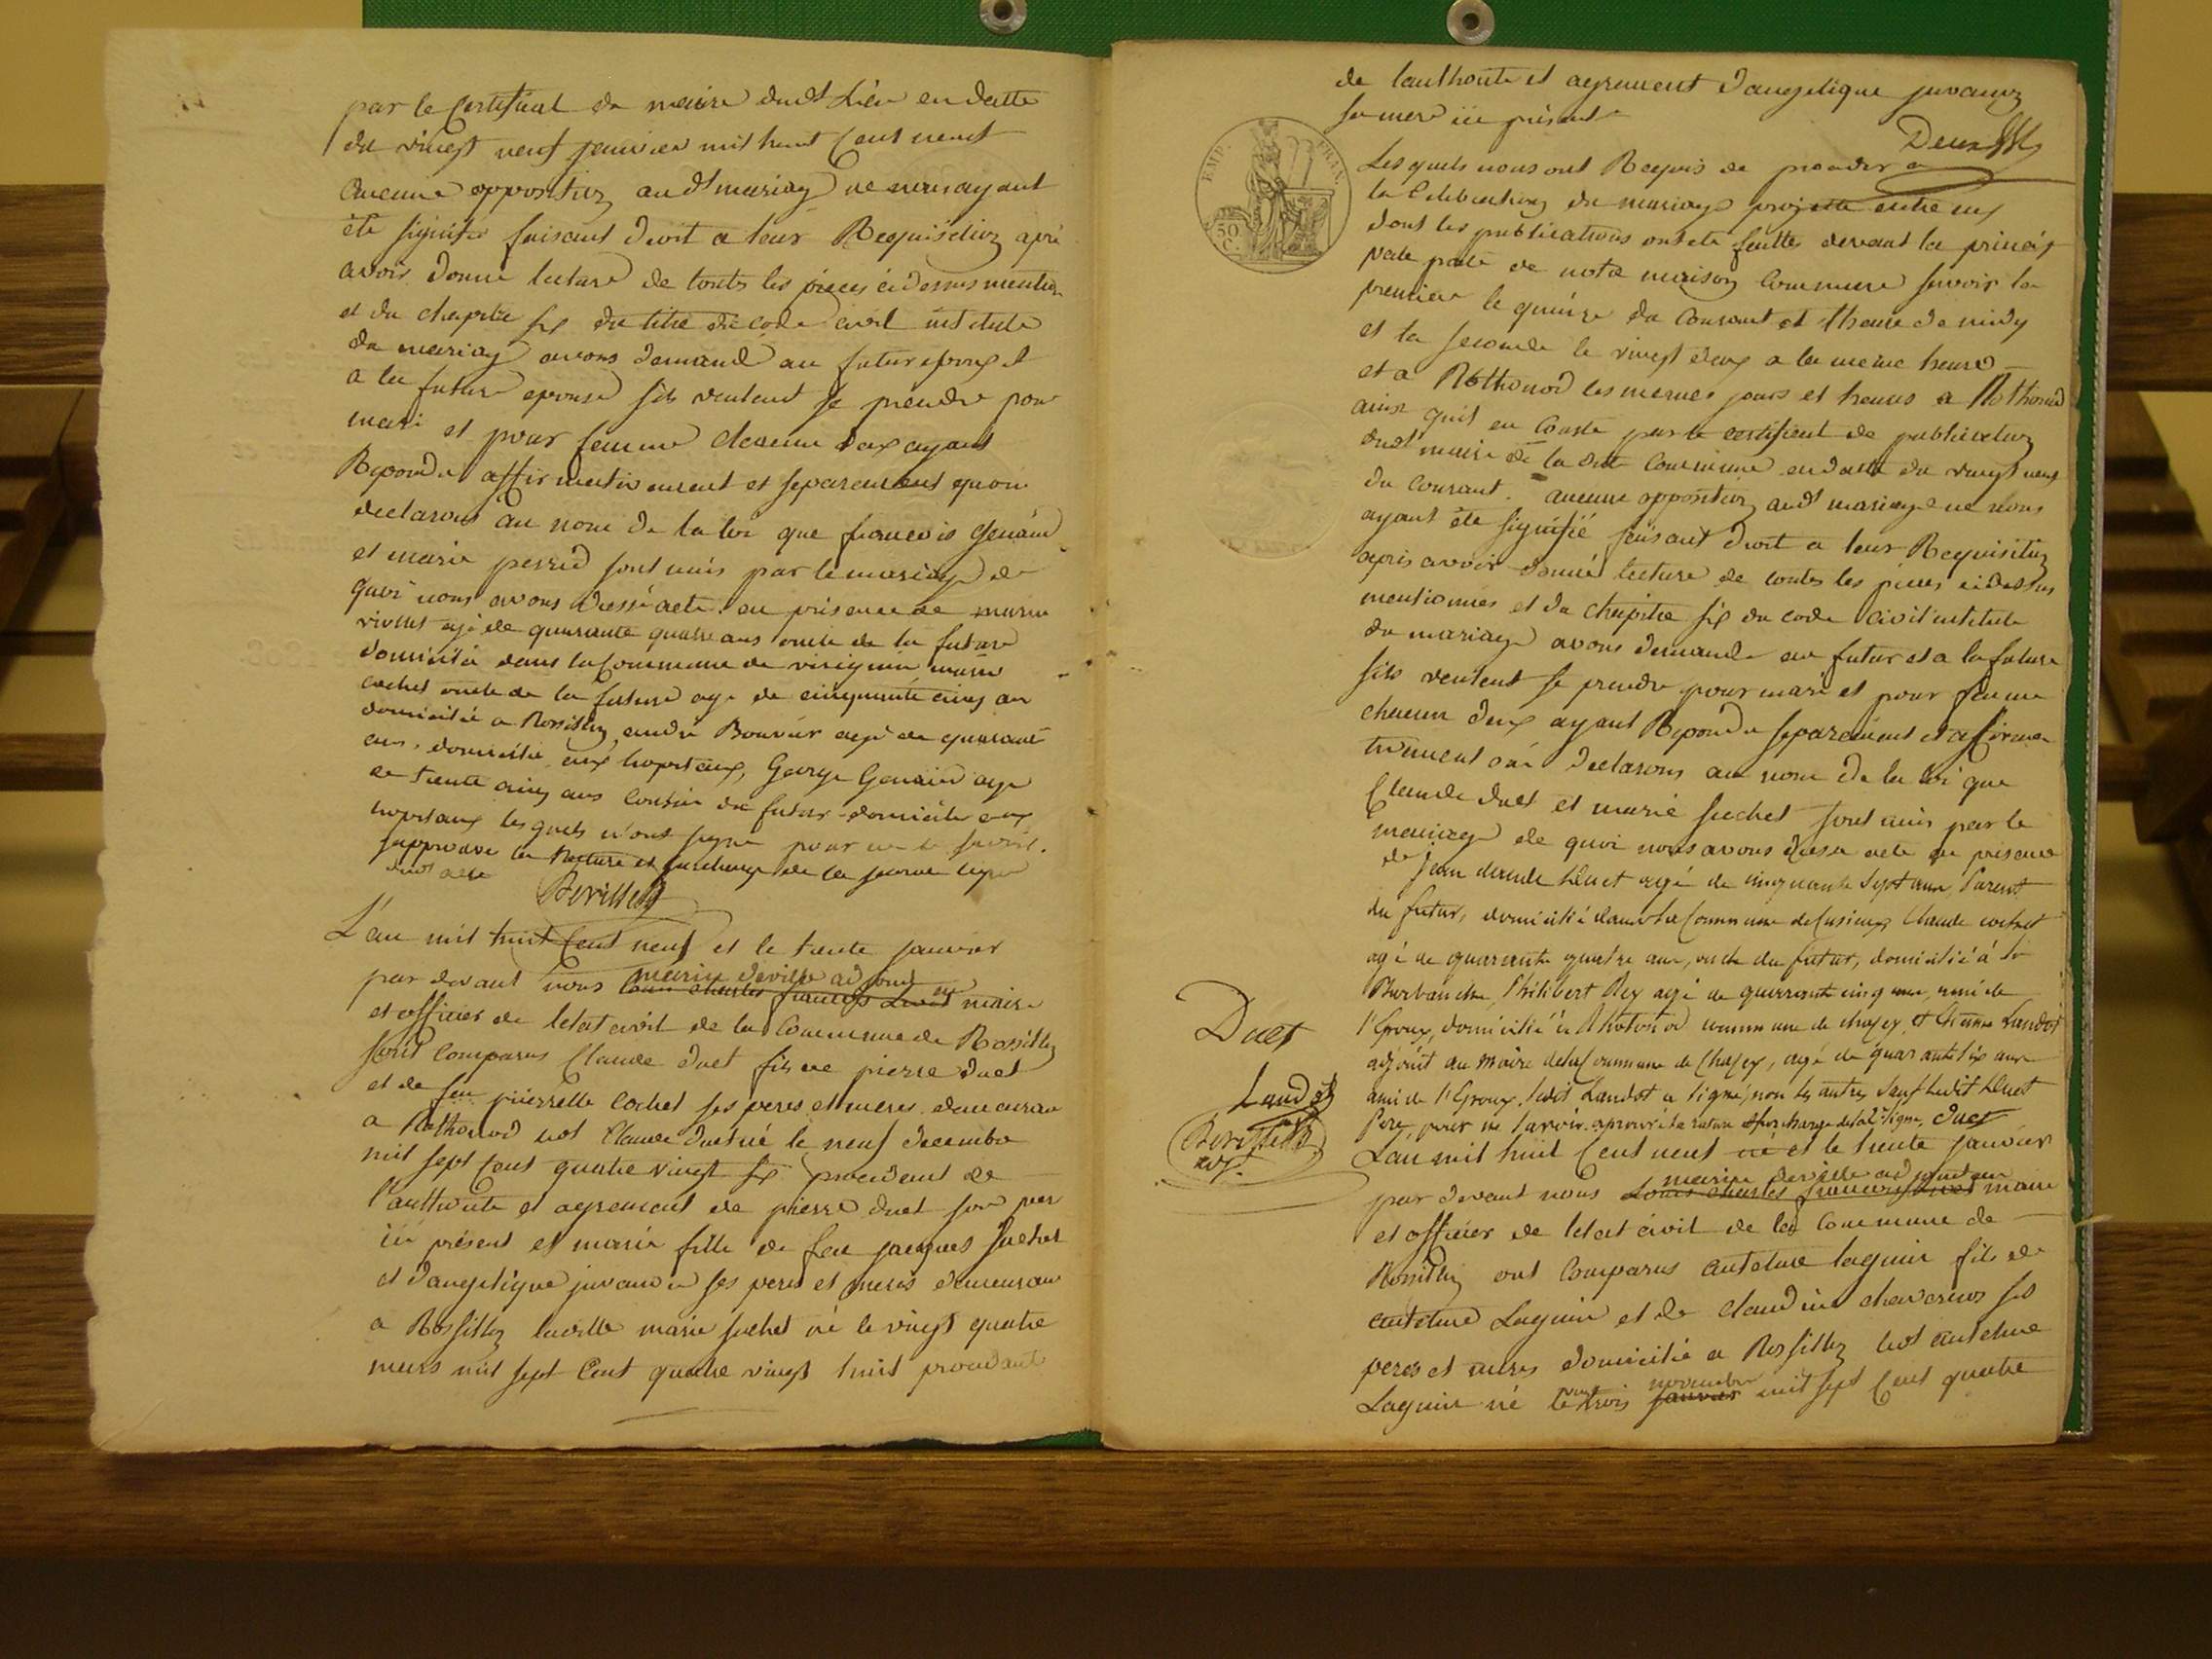 par le Certificat du maire dudt Lieu en datte
du vingt neuf janvier mil huit Cent neuf
Aucune opposition audt mariage ne nous ayant
été signifié faisant droit a leur Requisition apre
avoir donné lecture de touts les pieces ci dessus mention
et du chapitre six du titre du code civil intitule
du mariage avons demandé au futur epoux et
a la future epouse sils veulent se prendre pour
mari et pour femme chacun deux ayant
Repondu affirmativement et separement
declarons au nom de la loi que francois Genain
et marie perrid sont unis par le mariage de
quoi nous avons dressé acte en presence de
agé de quarante quatre ans oncle de la future
domicilié dans la Commune de virignin
cochet oncle de la future age de cinquante cinq an
domicilié a Rossillon andré Bouvier agé de quarante
ans, domicilié aux hopitaux, George Genain age
de trente cinq ans cousin du futur domicilié aux
hopitaux lesquels n'ont signé pour ne le savoir.
japprouve la Rature et surcharge de la ligne
dudt acte Deville
L'an mil huit Cent neuf et le trente janvier
marin deville adjoint au
par devant nous Louis Charles françois maire
et officier de letat civil de la Commune de Rossillon
sont comparus Claude duet fils de pierre duet
et de feu pierrette Cochet ses peres et meres demeuran
a Rothonod Claude duet né le neuf decembre
mil sept Cent quatre vingt six procedant de
l'authorité et agrement de pierre duet son pere
ici présent et marie fille de feu jacques suchet
et dangelique juvanon ses peres et meres demeuran
a Rossillon laditte marie suchet né le vingt quatre
mars mil sept Cent quatre vingt huit procedant
de lauthorité et agrement dangelique juvanon
sa mere ici présente
Les quels nous ont Requis de proceder a
la Celebration du mariage projetté entre eux
dont les publications ont été faittes devant la princi
pale porte de notre maison Commune savoir la
premiere le quinze du Courant et lheure de midy
et la seconde le vingt deux a la meme heure
et a Rothonod les memes jours et heures a Rothonod
ainsi quil en Conste par le certificat de publication
dudt maire de la ditte Commune en datte du vingt neuf
du courant. aucune opposition audt mariage ne nous
ayant été signifié faisant droit a leur Requisition
apres avoir donné lecture de toutes les pieces ci dessus
mentionnés et du chapitre six du code Civil intitule
du mariage avons demandé au futur et a la future
sils veulent se prendre pour mari et pour femme
chacun deux ayant Repondu separement et affirma
tivement oui declarons au nom de la loi que
Claude duet et marie suchet sont unis par le
mariage de quoi nous avons dressé acte en présence
de Jean claude Duet agé de cinquante sept ans, Parent
du futur, domicilié dans la Commune de Cusieux, Claude cochet
agé de quarante quatre ans, oncle du futur, domicilié à la
Burbanche, Philibert Rey agé de quarante cinq ans, ami de
l'Epoux, domicilié à Rhotonod commune de chazey, et Etienne Landot
adjoint au maire de la Commune de Chazey, agé de quarante six ans
ami de l'Epoux, ledit Landot a signé, non les autres sauf ledit Duet
Pere, pour ne savoir. approuvé la rature et surcharge de la 2e ligne, Duet
Duet
Landot
Deville
adj.
Lan mil huit Cent neuf et le trente janvier
marin deville adjoint au
par devant nous Louis Charles françois maire
et officier de letat civil de la Commune de
Rossillon ont comparus antelme laguin fils de
antelme Laguin et de claudine ses
peres et meres domicilié a Rossillon antelme
vingt novembre
Laguin né le trois janvier mil sept Cent quatre
EMP. FRAN.
50 C.